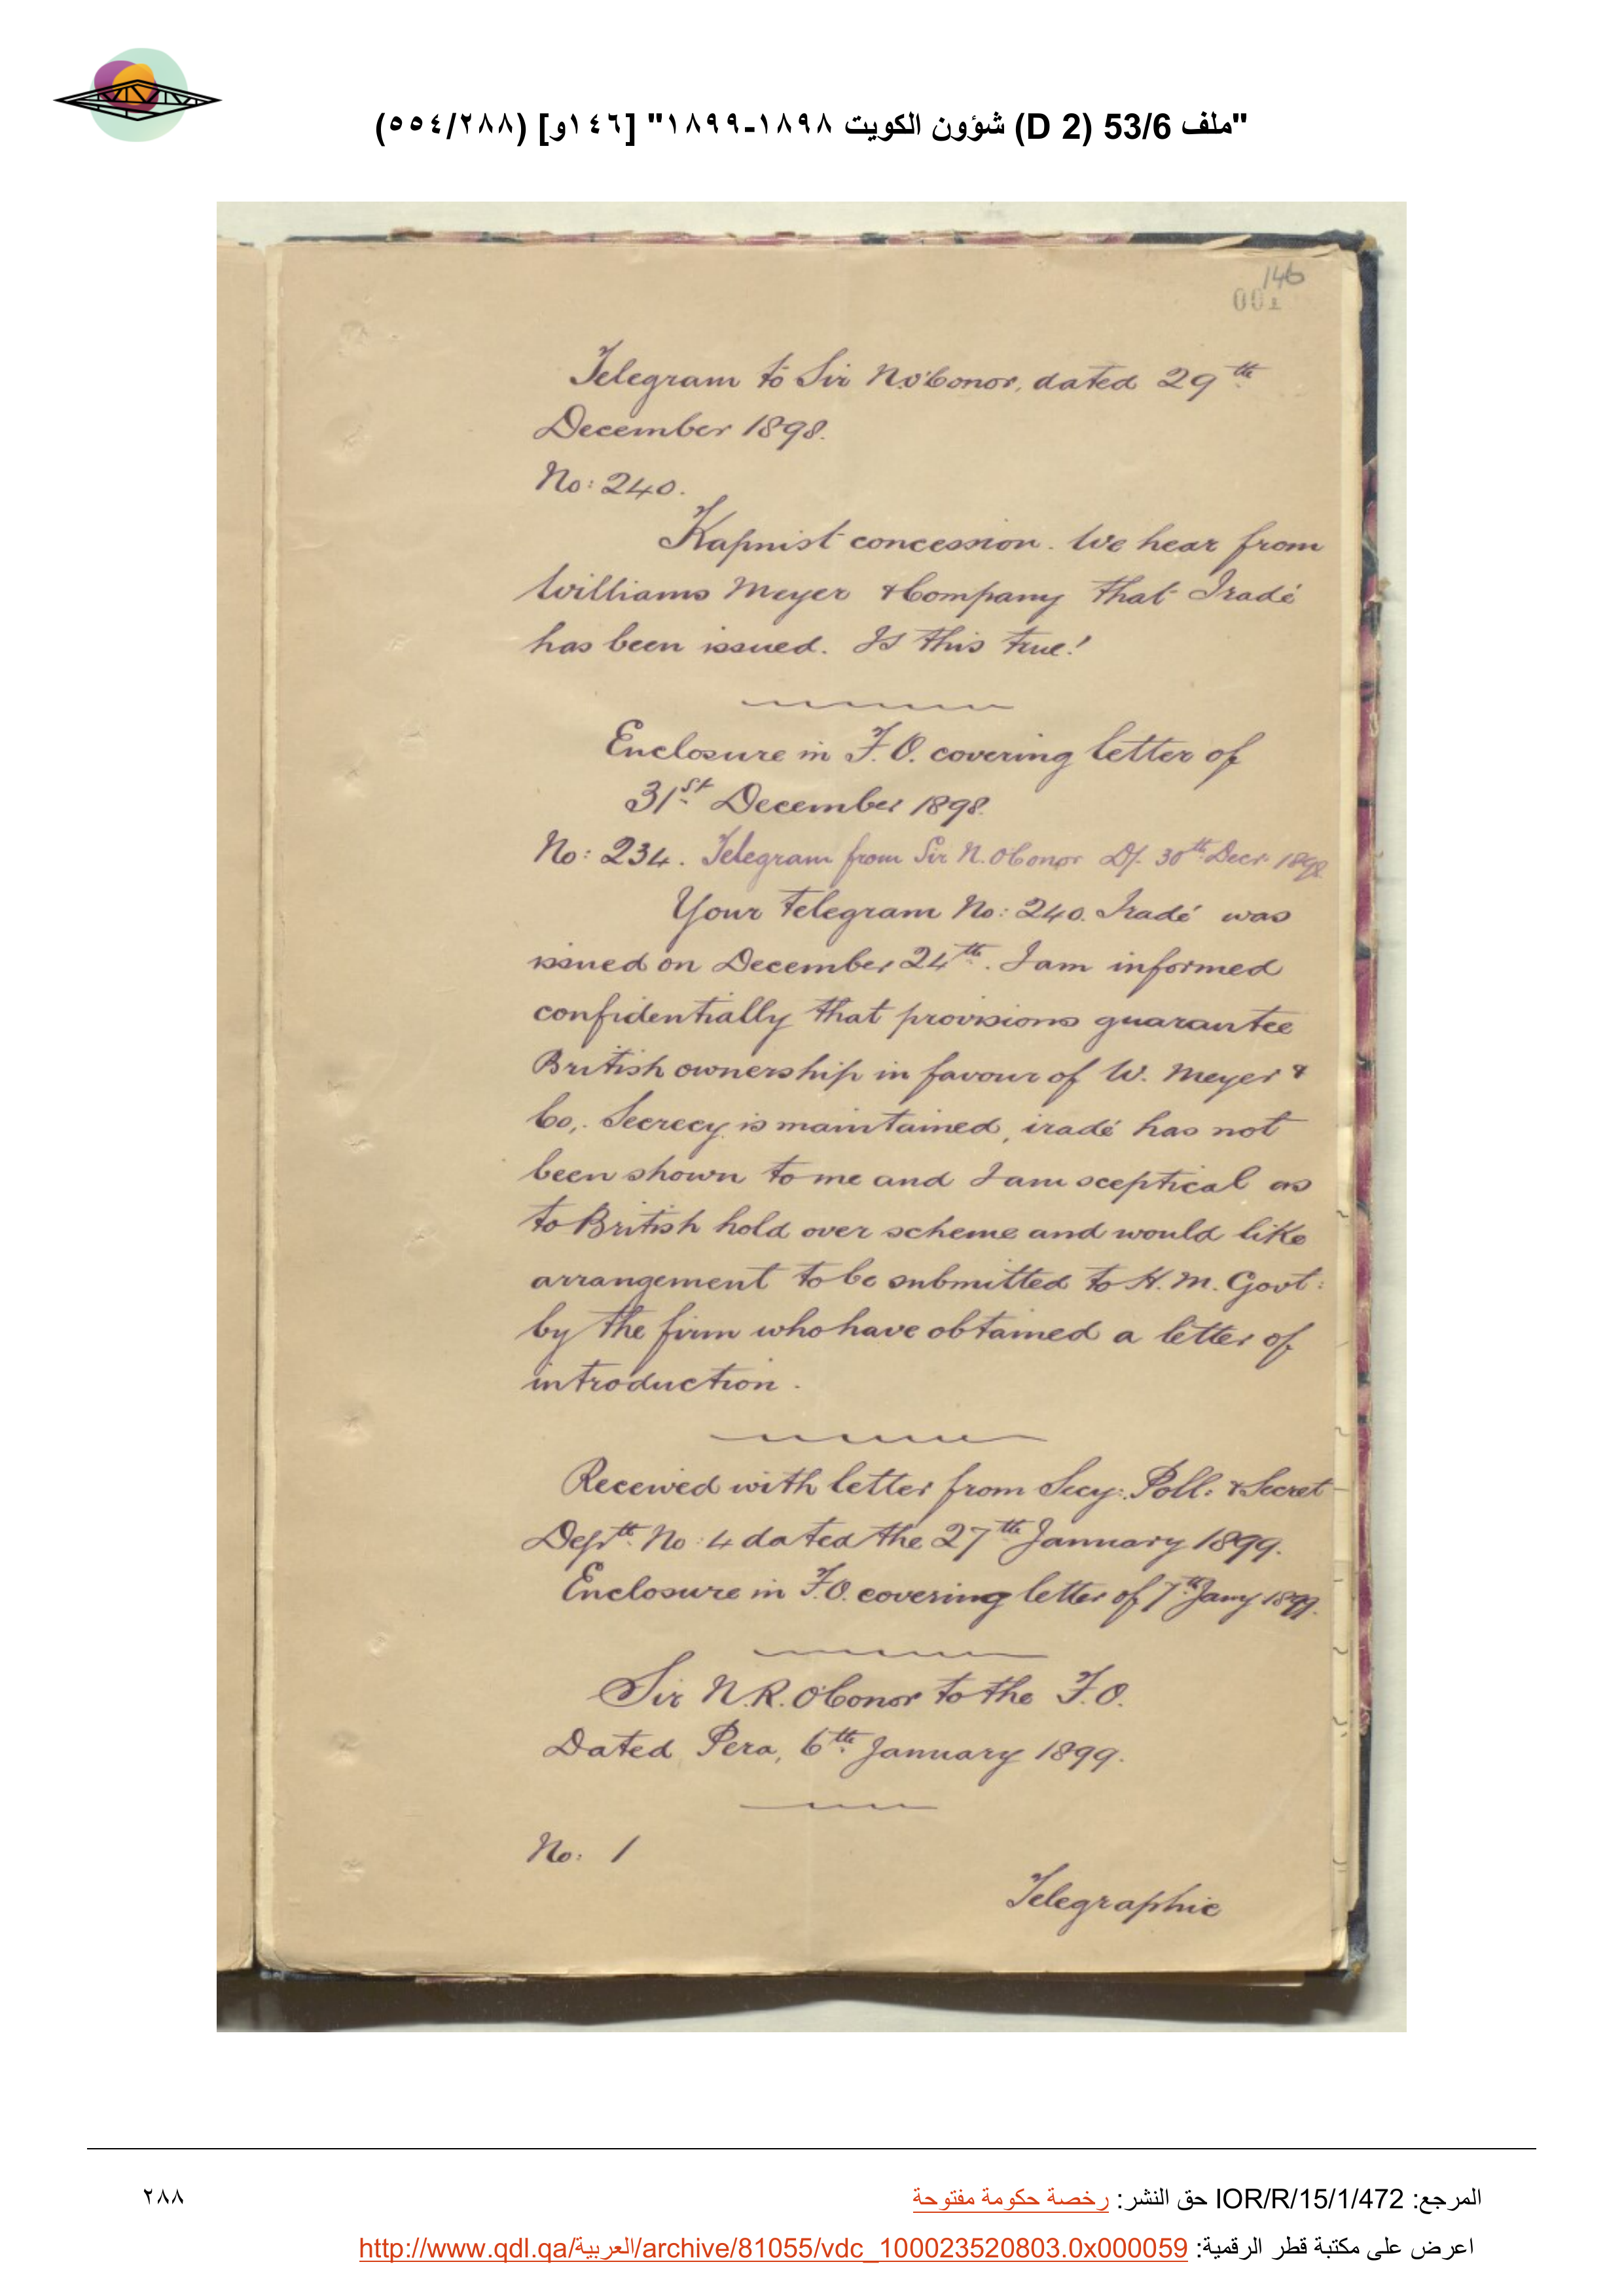 "ملف 53/6 (D 2) شؤون الكويت ١٨٩٨-١٨٩٩" [١٤٦و] (٥٥٤/٢٨٨)
146
001
Telegram to Sir N. O'Conor, dated 29th
December 1898.
No: 240.
Kapnist concession. We hear from
Williams Meyer & Company that Iradé
has been issued. Is this true!
Enclosure in F.O. covering letter of
31st December 1898.
No: 234. Telegram from Sir N. O'Conor D/. 30th Decr. 1898
Your Telegram No: 240. Iradé was
issued on December 24th. I am informed
confidentially that provisions guarantee
British ownership in favour of W. Meyer &
Co,. Secrecy is maintained, iradé has not
been shown to me and I am sceptical as
to British hold over scheme and would like
arrangement to be submitted to H. M. Govt:
by the firm who have obtained a letter of
introduction.
Received with letter from Secy: Poll: & Secret
Deptt. No: 4 dated the 27th January 1899.
Enclosure in F.O. covering letter of 7th Jany 1899.
Sir N.R. O'Conor to the F.O.
Dated Pera, 6th January 1899.
No: 1
Telegraphic
المرجع: IOR/R/15/1/472 حق النشر: رخصة حكومة مفتوحة
٢٨٨
اعرض على مكتبة قطر الرقمية: http://www.qdl.qa/العربية/archive/81055/vdc_100023520803.0x000059